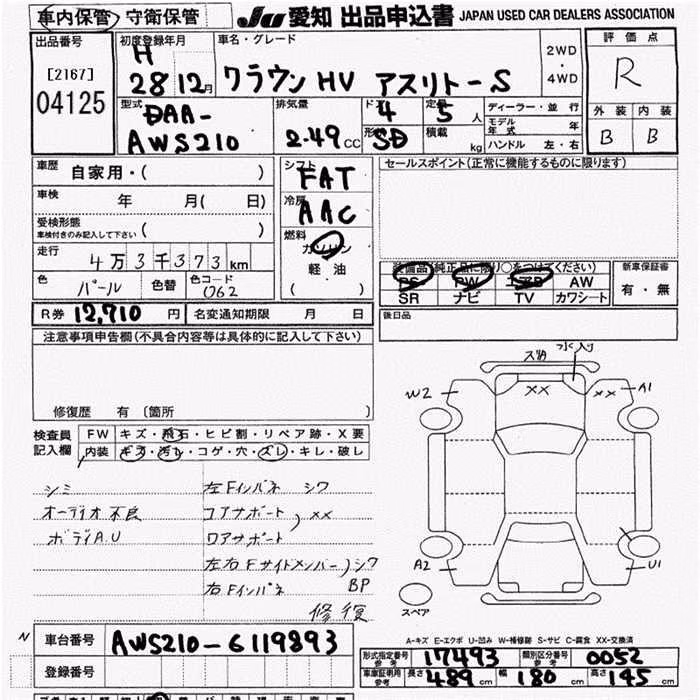 車内保管 守衛保管 JU 愛知 出品申込書 JAPAN USED CAR DEALERS ASSOCIATION
出品番号 初度登録年月 車名・グレード 2WD ・ 4WD 評価点
[2167] H 28 12月 クラウン HV アスリートーS R
04125 型式 DAA- AWS210 排気量 2.49 CC ドア 4 定員 5 人 ディーラー・並行
形状 SD 積載 kg モデル年式 年 外装 内装
ハンドル 左・右 B B
車歴 自家用・( ) シフト FAT セールスポイント(正常に機能するものに限ります)
車検 年 月( 日) 冷房 AAC
受検形態 車検付きのみ記入して下さい ( ) 燃料 ガソリン
走行 4万3千373km 軽油 装備品(純正品に限り○をつけてください) 新車保証書
色 パール 色替 色コード 062 ( ) PS PW エアB AW 有・無
SR ナビ TV カワシート
R券 12,710 円 名変通知期限 月 日 後日品
注意事項申告欄(不具合内容等は具体的に記入して下さい)
修復歴 有 〔箇所 〕
検査員記入欄 FW キズ・飛石・ヒビ割・リペア跡・X要
内装 キズ・汚レ・コゲ・穴・ズレ・キレ・破レ
シミ 左Fインパネ シワ
オーディオ不良 コアサポート ) ××
ボディA.U ロアサポート
左右Fサイドメンバー)シワ
右Fインパネ BP
修復
水入り
××
W2 ×× A1
A2 U1
スペア
A-キズ E-エクボ U-凹み W-補修跡 S-サビ C-腐食 XX-交換済
N 車台番号 AWS210-6119893
登録番号
形式指定番号 参考 17493 類別区分番号 参考 0052
車庫証明用 参考 長さ 489cm 幅 180cm 高さ 145cm